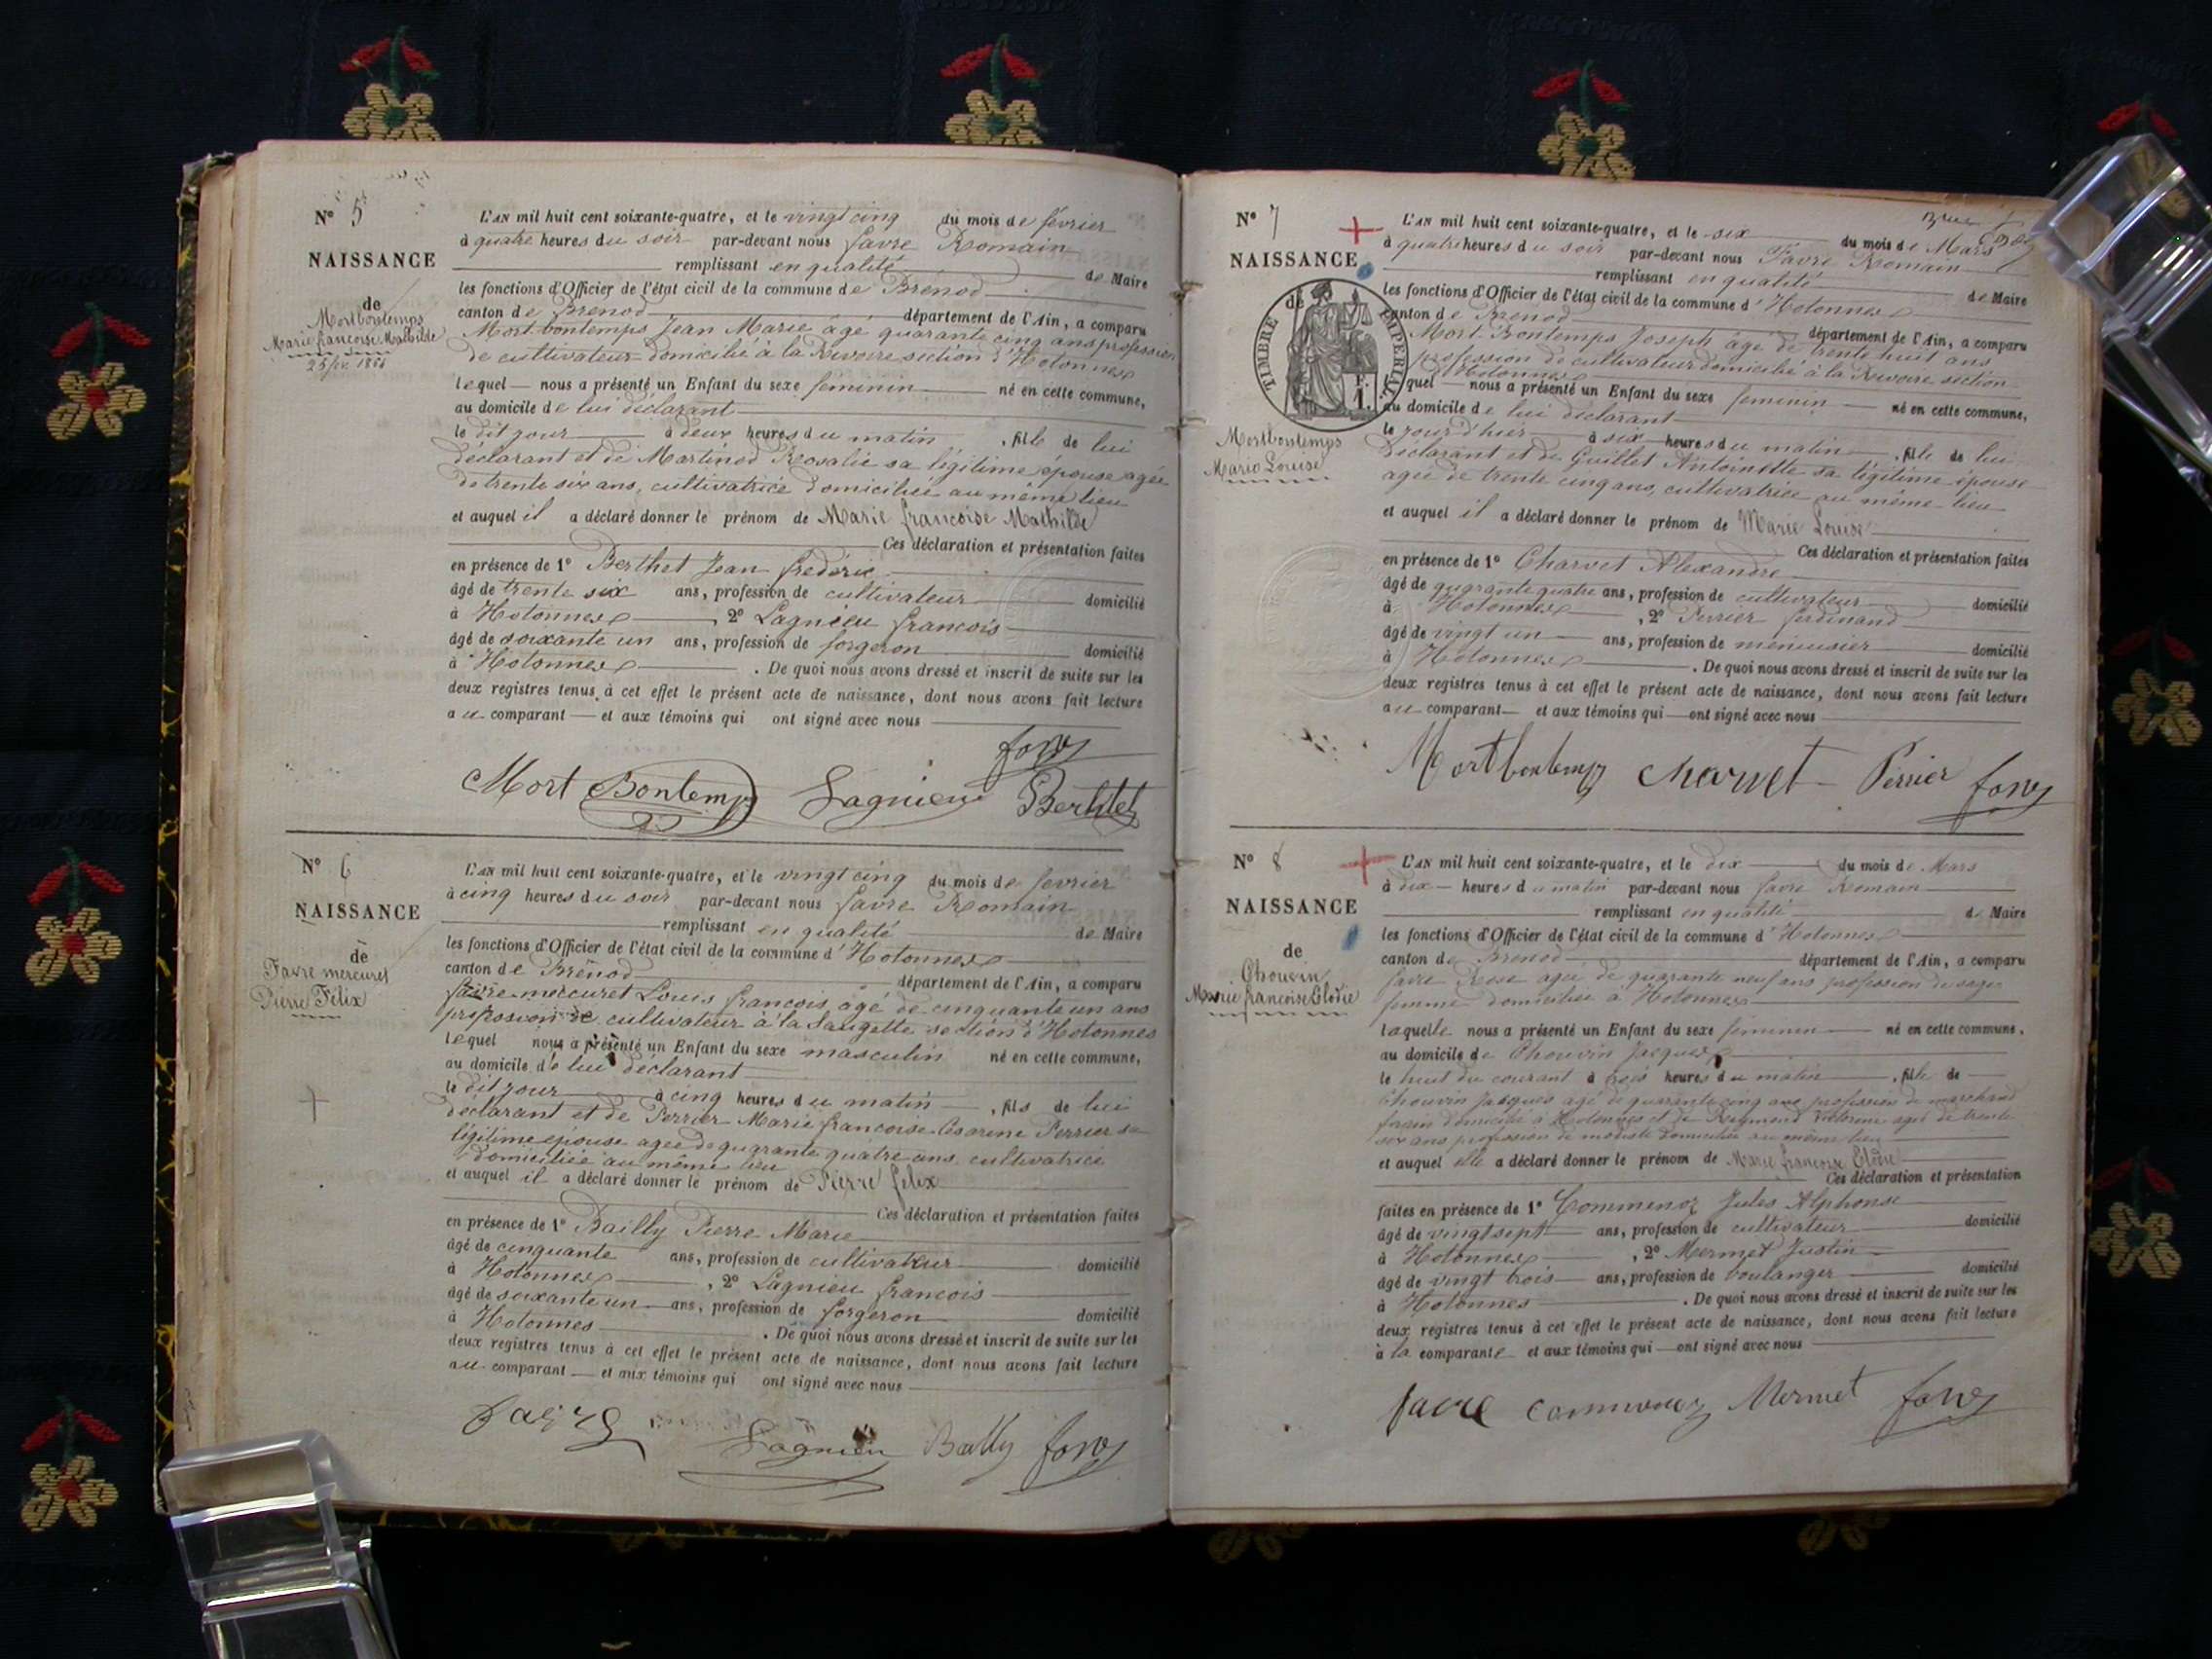 N° 5
NAISSANCE
de
Mortbontemps
Marie francoise Mathilde
25 fév. 1864
L'AN mil huit cent soixante-quatre, et le vingt cinq du mois de février
à quatre heures du soir par-devant nous favre Romain
remplissant en qualité de Maire
les fonctions d'Officier de l'état civil de la commune de Brénod
canton de Brenod département de l'Ain, a comparu
Mort-bontemps Jean Marie âgé quarante cinq ans profession
de cultivateur domicilié à la Revoire section d'Hotonnes
lequel nous a présenté un Enfant du sexe féminin né en cette commune,
au domicile de lui déclarant
le dit jour à deux heures du matin, fille de lui
déclarant et de Martinod Rosalie sa légitime épouse agée
de trente six ans, cultivatrice domiciliée au même lieu
et auquel il a déclaré donner le prénom de Marie francoise Mathilde
Ces déclaration et présentation faites
en présence de 1° Berthet Jean frederic
âgé de trente six ans, profession de cultivateur domicilié
à Hotonnes, 2° Lagnieu francois
âgé de soixante un ans, profession de forgeron domicilié
à Hotonnes. De quoi nous avons dressé et inscrit de suite sur les
deux registres tenus à cet effet le présent acte de naissance, dont nous avons fait lecture
au comparant et aux témoins qui ont signé avec nous
favre
Mort Bontemps Lagnieu Berthet
N° 6
NAISSANCE
de
Favre mercuret
Pierre Félix
L'AN mil huit cent soixante-quatre, et le vingt cinq du mois de fevrier
à cinq heures du soir par-devant nous favre Romain
remplissant en qualité de Maire
les fonctions d'Officier de l'état civil de la commune d'Hotonnes
canton de Brénod département de l'Ain, a comparu
favre-mercuret Louis francois âgé de cinquante un ans
profession de cultivateur à la Saugette section d'Hotonnes
lequel nous a présenté un Enfant du sexe masculin né en cette commune,
au domicile de lui déclarant
le dit jour à cinq heures du matin, fils de lui
déclarant et de Perrier Marie francoise Césarine Perrier sa
légitime épouse agée de quarante quatre ans cultivatrice
domiciliée au même lieu
et auquel il a déclaré donner le prénom de Pierre félix
Ces déclaration et présentation faites
en présence de 1° Bailly Pierre Marie
âgé de cinquante ans, profession de cultivateur domicilié
à Hotonnes, 2° Lagnieu francois
âgé de soixante un ans, profession de forgeron domicilié
à Hotonnes. De quoi nous avons dressé et inscrit de suite sur les
deux registres tenus à cet effet le présent acte de naissance, dont nous avons fait lecture
au comparant et aux témoins qui ont signé avec nous
favre Lagnieu Bailly favre
N° 7
NAISSANCE
de
TIMBRE IMPERIAL
F. 1.
Mortbontemps
Marie Louise
L'AN mil huit cent soixante-quatre, et le six du mois de Mars
à quatre heures du soir par-devant nous Favre Romain
remplissant en qualité de Maire
les fonctions d'Officier de l'état civil de la commune d'Hotonnes
canton de Brenod département de l'Ain, a comparu
Mort-Bontemps Joseph âgé de trente huit ans
profession de cultivateur domicilié à la Revoire section
d'Hotonnes
lequel nous a présenté un Enfant du sexe feminin né en cette commune,
au domicile de lui déclarant
le jour d'hier à six heures du matin, fille de lui
déclarant et de Guillet Antoinette sa légitime épouse
agée de trente cinq ans, cultivatrice au même lieu
et auquel il a déclaré donner le prénom de Marie Louise
Ces déclaration et présentation faites
en présence de 1° Charvet Alexandre
âgé de quarante quatre ans, profession de cultivateur domicilié
à Hotonnes, 2° Perrier ferdinand
âgé de vingt un ans, profession de menuisier domicilié
à Hotonnes. De quoi nous avons dressé et inscrit de suite sur les
deux registres tenus à cet effet le présent acte de naissance, dont nous avons fait lecture
au comparant et aux témoins qui ont signé avec nous
Mortbontemps Charvet Perrier favre
N° 8
NAISSANCE
de
Chouvin
Marie francoise Elodie
L'AN mil huit cent soixante-quatre, et le dix du mois de Mars
à dix heures du matin par-devant nous favre Romain
remplissant en qualité de Maire
les fonctions d'Officier de l'état civil de la commune d'Hotonnes
canton de Brenod département de l'Ain, a comparu
favre Rose agée de quarante neuf ans profession de sage
femme domiciliée à Hotonnes
laquelle nous a présenté un Enfant du sexe féminin né en cette commune,
au domicile de Chouvin Jacques
le huit du courant à trois heures du matin, fille de
Chouvin Jacques agé de quarante cinq ans profession de marchand
forain domicilié à Hotonnes et de Reymond Victorine agée de trente
six ans profession de modiste domiciliée au même lieu
et auquel elle a déclaré donner le prénom de Marie francoise Elodie
Ces déclaration et présentation
faites en présence de 1° Commenoz Jules Alphonse
âgé de vingt sept ans, profession de cultivateur domicilié
à Hotonnes, 2° Mermet Justin
âgé de vingt trois ans, profession de boulanger domicilié
à Hotonnes. De quoi nous avons dressé et inscrit de suite sur les
deux registres tenus à cet effet le présent acte de naissance, dont nous avons fait lecture
à la comparante et aux témoins qui ont signé avec nous
favre Commenoz Mermet favre